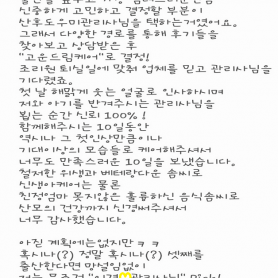 신중하게 고민하고 결정할 부분이
산후도우미관리사님을 택하는거였어요.
그래서 다양한 경로를 통해 후기들을
찾아보고 상담받은 후
"고운드림케어"로 결정!
조리원 퇴실일에 맞춰 업체를 믿고 관리사님을
기다렸죠.
첫 날 해맑게 웃는 얼굴로 인사하시며
저와 아기를 반겨주시는 관리사님을
뵙는 순간 신뢰 100% !
함께해주시는 10일동안
역시나 그 첫인상만큼이나
기대이상의 모습들로 케어해주셔서
너무도 만족스러운 10일을 보냈습니다.
철저한 위생과 베테랑다운 솜씨로
신생아케어는 물론
친정엄마 못지않은 훌륭하신 음식솜씨로
산모의 건강까지 신경써주셔서
너무 감사했습니다.
아직 계획에는없지만ㅋㅋ
혹시나(?) 정말 혹시나(?) 셋째를
출산한다면 망설임없이